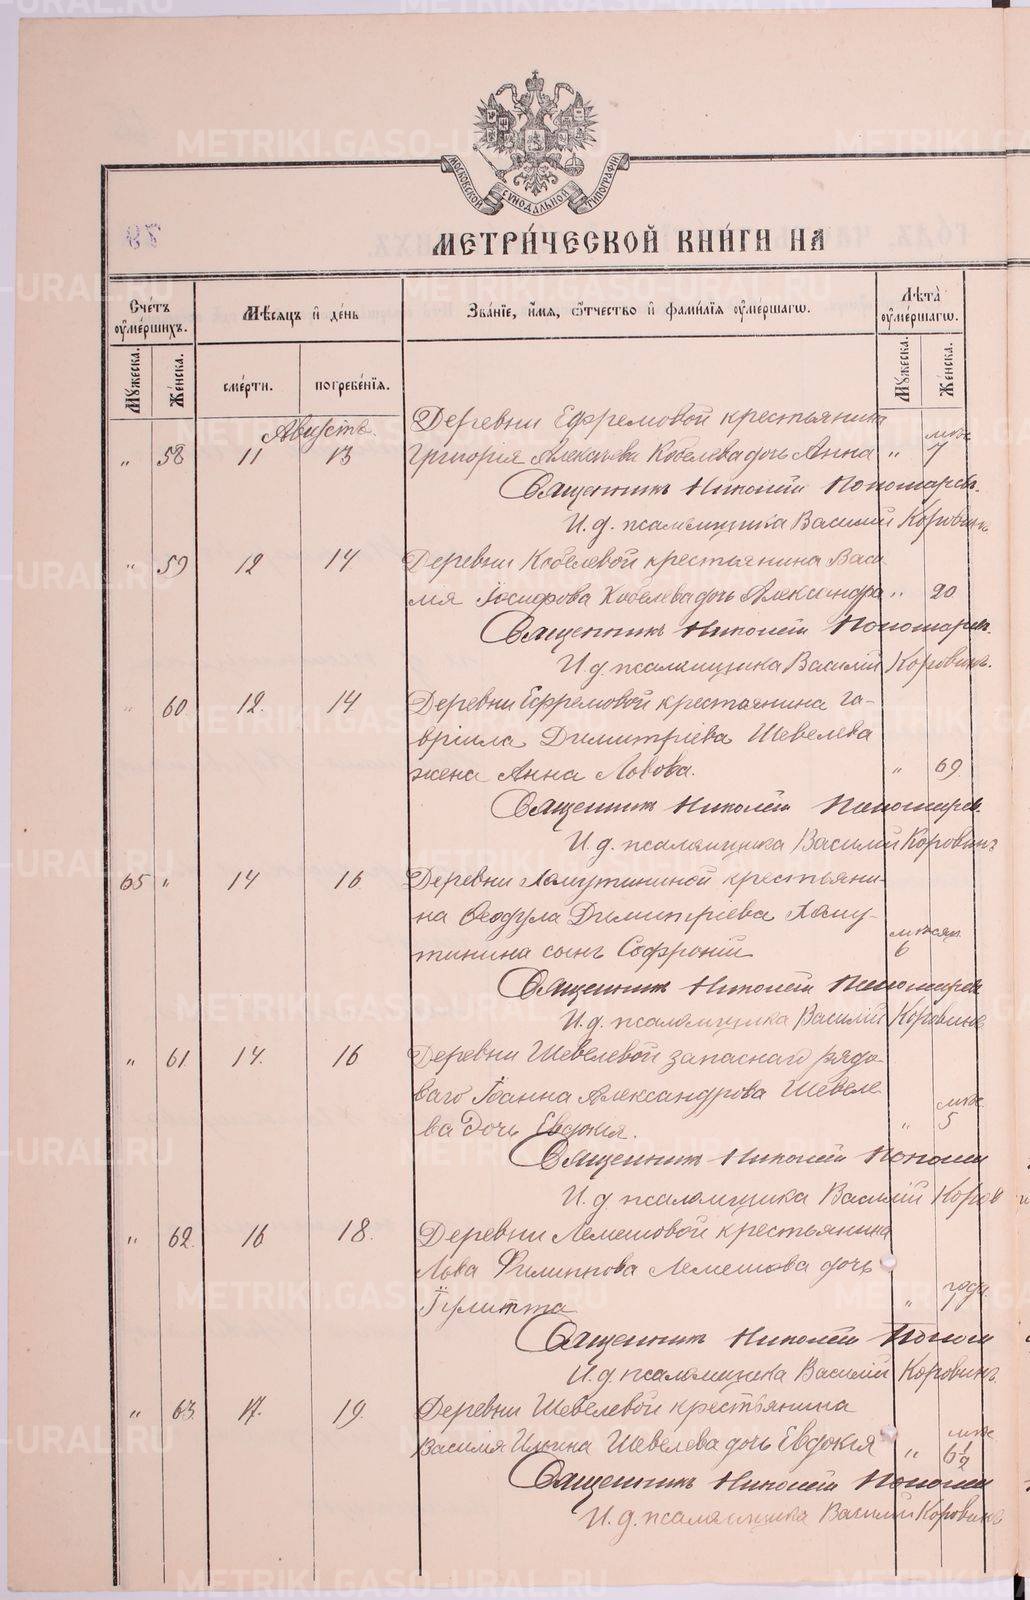 МОСКОВСКОЙ СѴНОДАЛЬНОЙ ТИПОГРАФІИ
МЕТРИ́ЧЕСКОЙ КНИ́ГИ НА
Сче́тъ ᲂу҆ме́ршихъ.
Мѣ́сяцъ и҆ де́нь
Зва́нїе, и҆́мѧ, ѻ҆́тчество и҆ фами́лїѧ ᲂу҆ме́ршагѡ.
Лѣта̀ ᲂу҆ме́ршагѡ.
Мꙋ́жеска.
Же́нска.
сме́рти.
погребе́нїѧ.
Мꙋ́жеска.
Же́нска.
Августъ.
Деревни Ефремовой крестьянина
" 58 11 13 Григорія Алексѣева Кобелева дочь Анна " мѣс 7
Священникъ Николай Пономарев.
И. д. псаломщика Василій Коровинъ
" 59 12 14 Деревни Кобелевой крестьянина Васи-
лія Іосифова Кобелева дочь Александра " 20
Священникъ Николай Пономарев.
И. д. псаломщика Василій Коровинъ.
" 60 12. 14 Деревни Ефремовой крестьянина Га-
вріила Димитріева Шевелева
жена Анна Львова. " 69
Священник Николай Пономарев.
И. д. псаломщика Василій Коровинъ
65 " 14 16 Деревни Хомутининой крестьяни-
на Ѳеодула Димитріева Хому-
тинина сынъ Софроній мѣсяц 6
Священник Николай Пономарев
И. д. псаломщика Василій Коровинъ
" 61 14. 16 Деревни Шевелевой запаснаго рядо-
ваго Іоанна Александрова Шевеле
ва дочь Евдокія. " мѣс 5
Священник Николай Пономар
И. д псаломщика Василій Коров
" 62. 16 18. Деревни Лемешовой крестьянина
Льва Филиппова Лемешова дочь
Іулитта " года
Священник Николай Поном
И. д. псаломщика Василій Коровинъ.
" 63. 17. 19. Деревни Шевелевой крестьянина
Василія Ильина Шевелева дочь Евдокія " мѣс 6 1/2
Священникъ Николай Поном
И. д. псаломщика Василій Коровинъ
METRIKI.GASO-URAL.RU